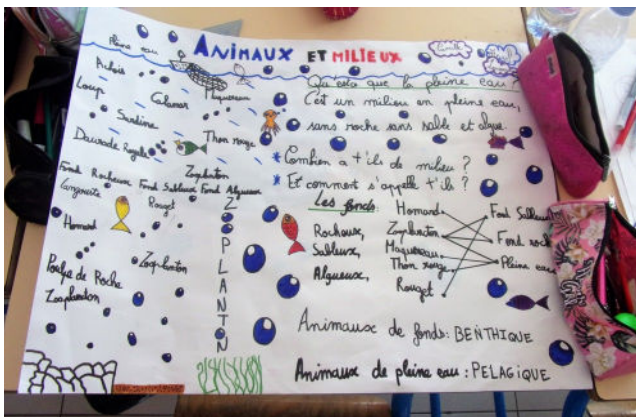 ANIMAUX ET MILIEUX
Pleine eau
Anchois
Loup
Calamar
Maquereau
Sardine
Daurade Royale
Thon rouge
Zooplanton
Fond Rocheux
Fond Sableux
Fond Algueux
Langouste
Rouget
Homard
Poulpe de Roche
Zooplanton
Zooplanton
ZOOPLANTON
Qu'es ce que la pleine eau ?
C'est un milieu en pleine eau,
sans roche sans sable et algue.
* Combien a t'ils de milieu ?
* Et comment s'appelle t'ils ?
Les fonds:
Rocheux,
Sableux,
Algueux,
Homard
Zooplancton
Maquereau
Thon rouge
Rouget
Fond Sableux
Fond roche
Pleine eau
Animaux de fonds: BENTHIQUE
Animaux de pleine eau : PELAGIQUE